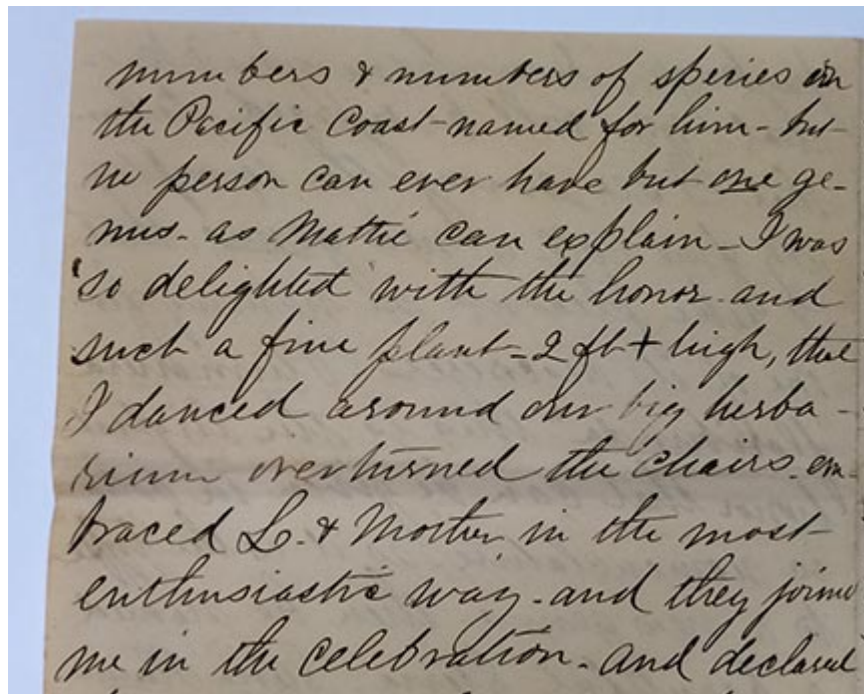 numbers & numbers of species on
the Pacific Coast - named for him - but
no person can ever have but one ge-
nus - as Mattie can explain - I was
so delighted with the honor - and
such a fine plant - 2 ft + high, that
I danced around our big herba-
rium overturned the chairs - em-
braced L. & Mother in the most
enthusiastic way - and they joined
me in the celebration - and declared